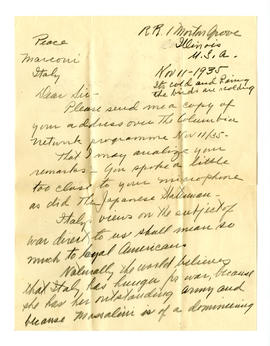 R.R. 1 Morton Grove
Illinois
U.S.A.
Peace
Marconi
Italy
Nov 11-1935
Its cold and Rainy
the birds are
Dear Sir-
Please send me a copy of
your address over the Columbia
network programme Nov 11/35-
That I may analize your
remarks- You spoke a little
too close to your microphone
as did the Japanese
Italy's views on the subject of
war direct to us shall mean so
much to loyal Americans
Naturally the world believes
that Italy has hunger for war, because
she has her outstanding army and
because Mussolini is of a domineering